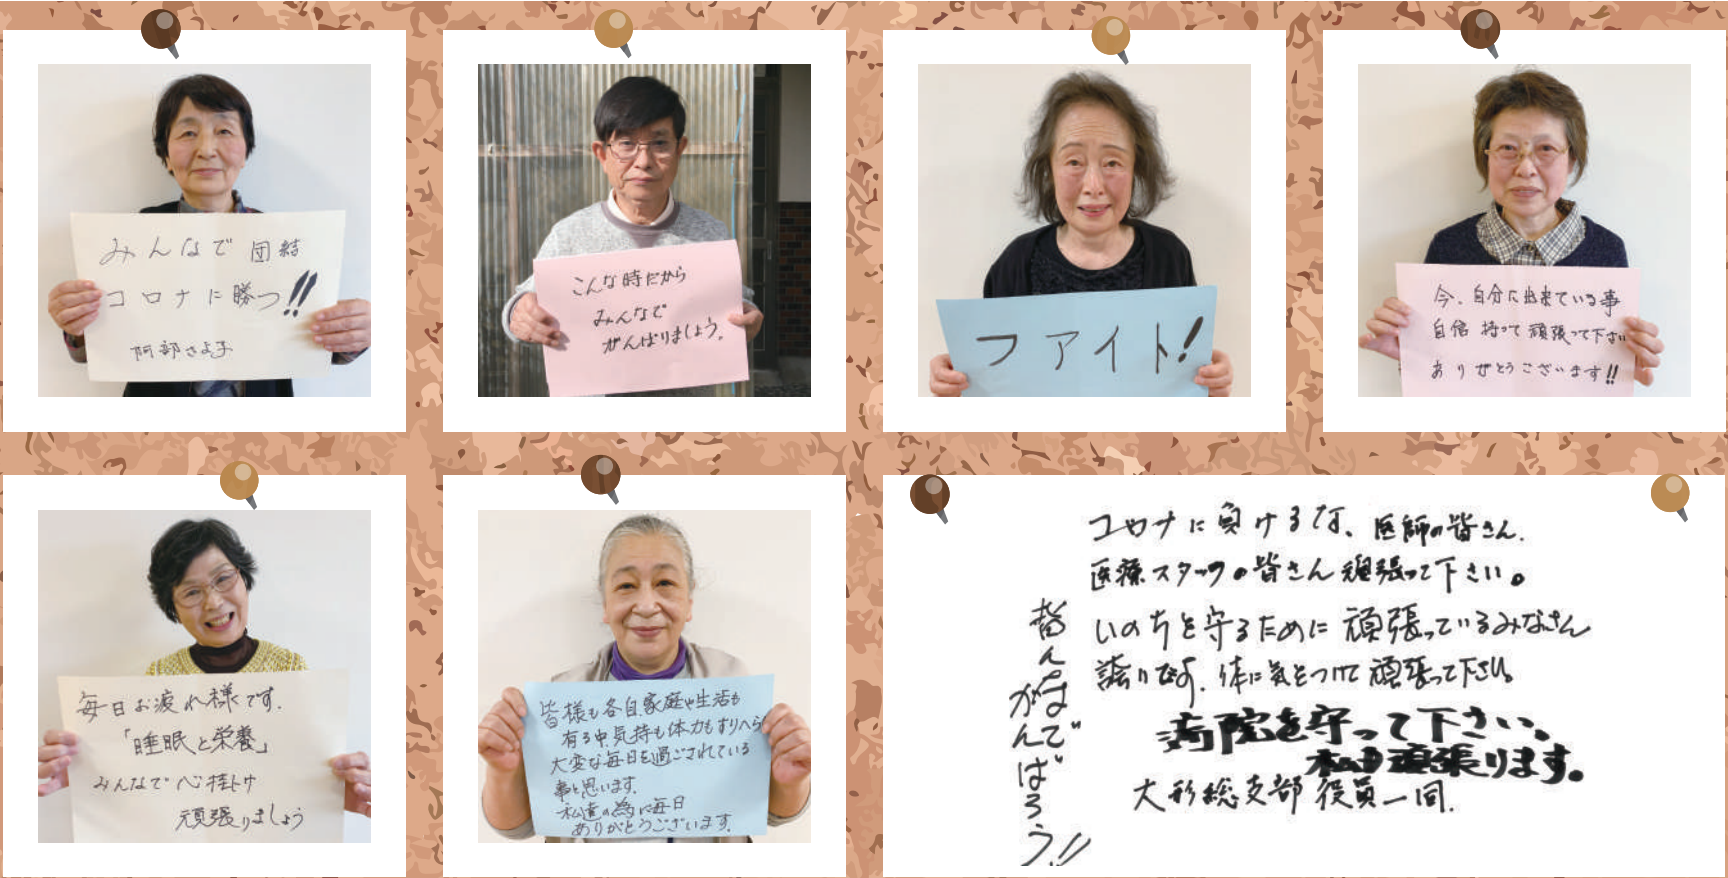 みんなで団結
コロナに勝つ!!
阿部さよ子
こんな時だから
みんなで
がんばりましょう。
ファイト!
今、自分に出来ている事
自信持って頑張って下さい
ありがとうございます!!
毎日お疲れ様です.
「睡眠と栄養」
みんなで心掛け
頑張りましょう
皆様も各自家庭や生活も
有る中、気持も体力もすりへらし
大変な毎日を過ごされている
事と思います.
私達の為に毎日
ありがとうございます.
コロナに負けるな、医師の皆さん.
医療スタッフの皆さん頑張って下さい。
いのちを守るために頑張っているみなさん
誇りです.体に気をつけて頑張って下さい
病院を守って下さい。
私も頑張ります。
大形総支部役員一同.
皆んなで
がんばろう!!